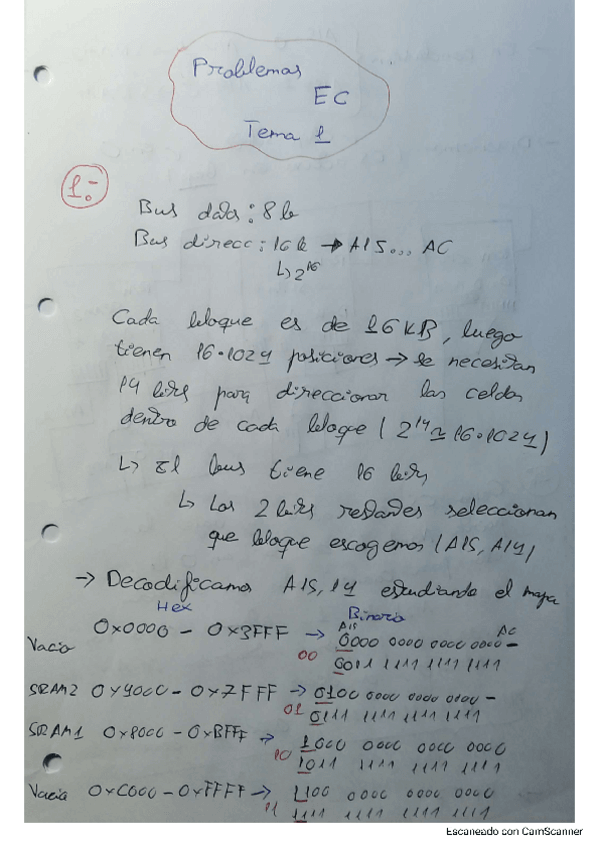 Problemas
EC
Tema 1
1.-
Bus datos: 8 b
Bus direcc: 16 b → A15... A0
↳ 2^16
Cada bloque es de 16 KB, luego
tienen 16·1024 posiciones → se necesitan
14 bits para direccionar las celdas
dentro de cada bloque (2^14 ≈ 16·1024)
↳ El bus tiene 16 bits
↳ Los 2 bits restantes seleccionan
que bloque escogemos (A15, A14)
→ Decodificamos A15, 14 estudiando el mapa
Hex Binario
A15 A0
Vacio 0x0000 - 0x3FFF → 0000 0000 0000 0000 -
00 0011 1111 1111 1111
SRAM2 0x4000 - 0x7FFF → 0100 0000 0000 0000 -
01 0111 1111 1111 1111
SRAM1 0x8000 - 0xBFFF → 1000 0000 0000 0000
10 1011 1111 1111 1111
Vacia 0xC000 - 0xFFFF → 1100 0000 0000 0000
11 1111 1111 1111 1111
Escaneado con CamScanner